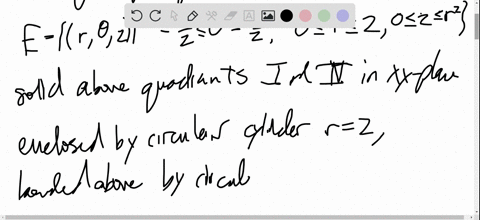 E={(r,θ,z)| -π/2≤θ≤π/2, 0≤r≤2, 0≤z≤r²}
solid above quadrants I and IV in xy-plane
enclosed by circular cylinder r=2,
bounded above by circul